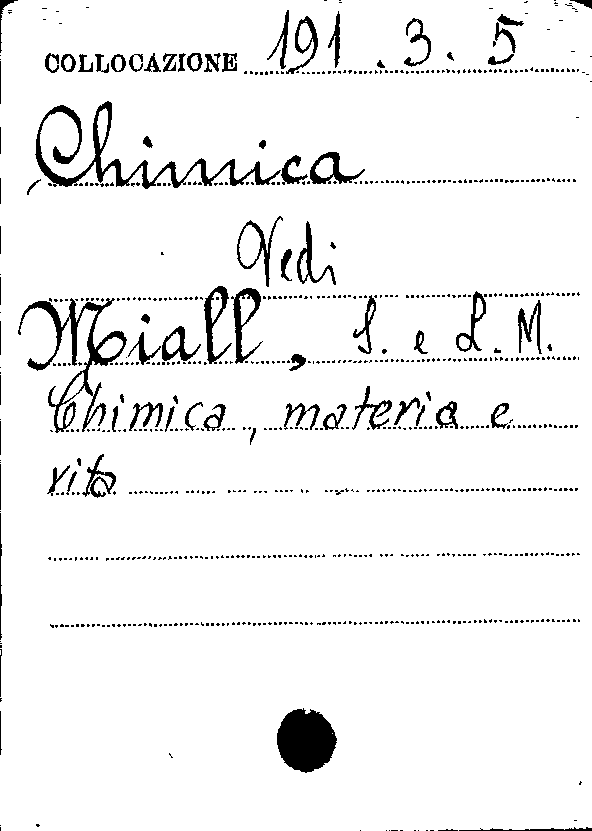 COLLOCAZIONE 191.3.5
Chimica
Vedi
Miall, S. e L. M.
Chimica, materia e
vita